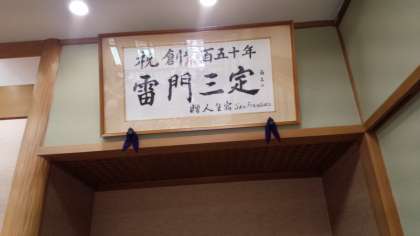 祝 創業百五十年
雷門三定
贈人生宿 San Francisco